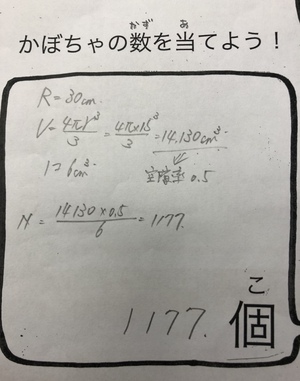 かず あ
かぼちゃの数を当てよう！
R = 30cm.
V = 4πr³/3 = 4π×15³/3 = 14,130cm³
1コ 6cm³.
空隙率 0.5
N = 14130 × 0.5/6 = 1177.
こ
1177. 個